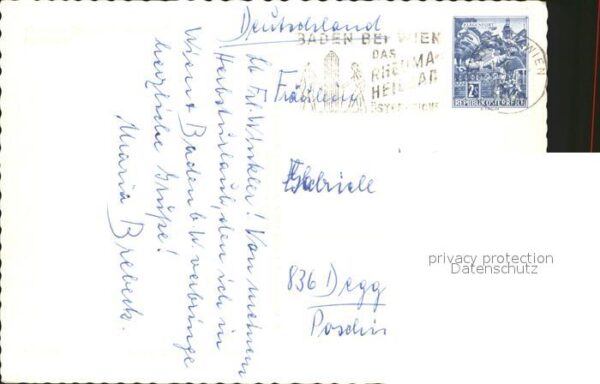 Deutschland
BADEN BEI WIEN
DAS
RHEUMA-
HEILBAD
ÖSTERREICHS
WIEN
2S
REPUBLIK ÖSTERREICH
Fräulein
Gabriele
836 Degg
Poschin
Lb. Frl. Winkler! Von meinem
Herbsturlaub, den ich in
Wien + Baden b. W. verbringe
herzliche Grüße!
Maria Brebeck.
privacy protection
Datenschutz